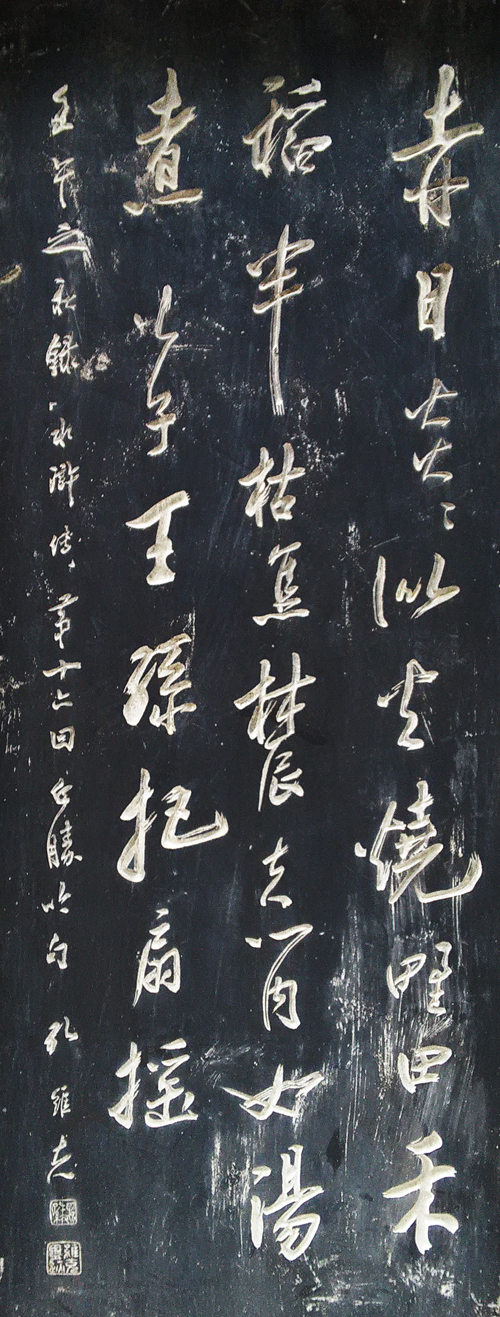 赤日炎〻似火燒野田禾
稻半枯焦辳夫心内如湯
煮公子王孫把扇摇
壬午之秋錄水滸傳第十六回白勝吟句 孔維克